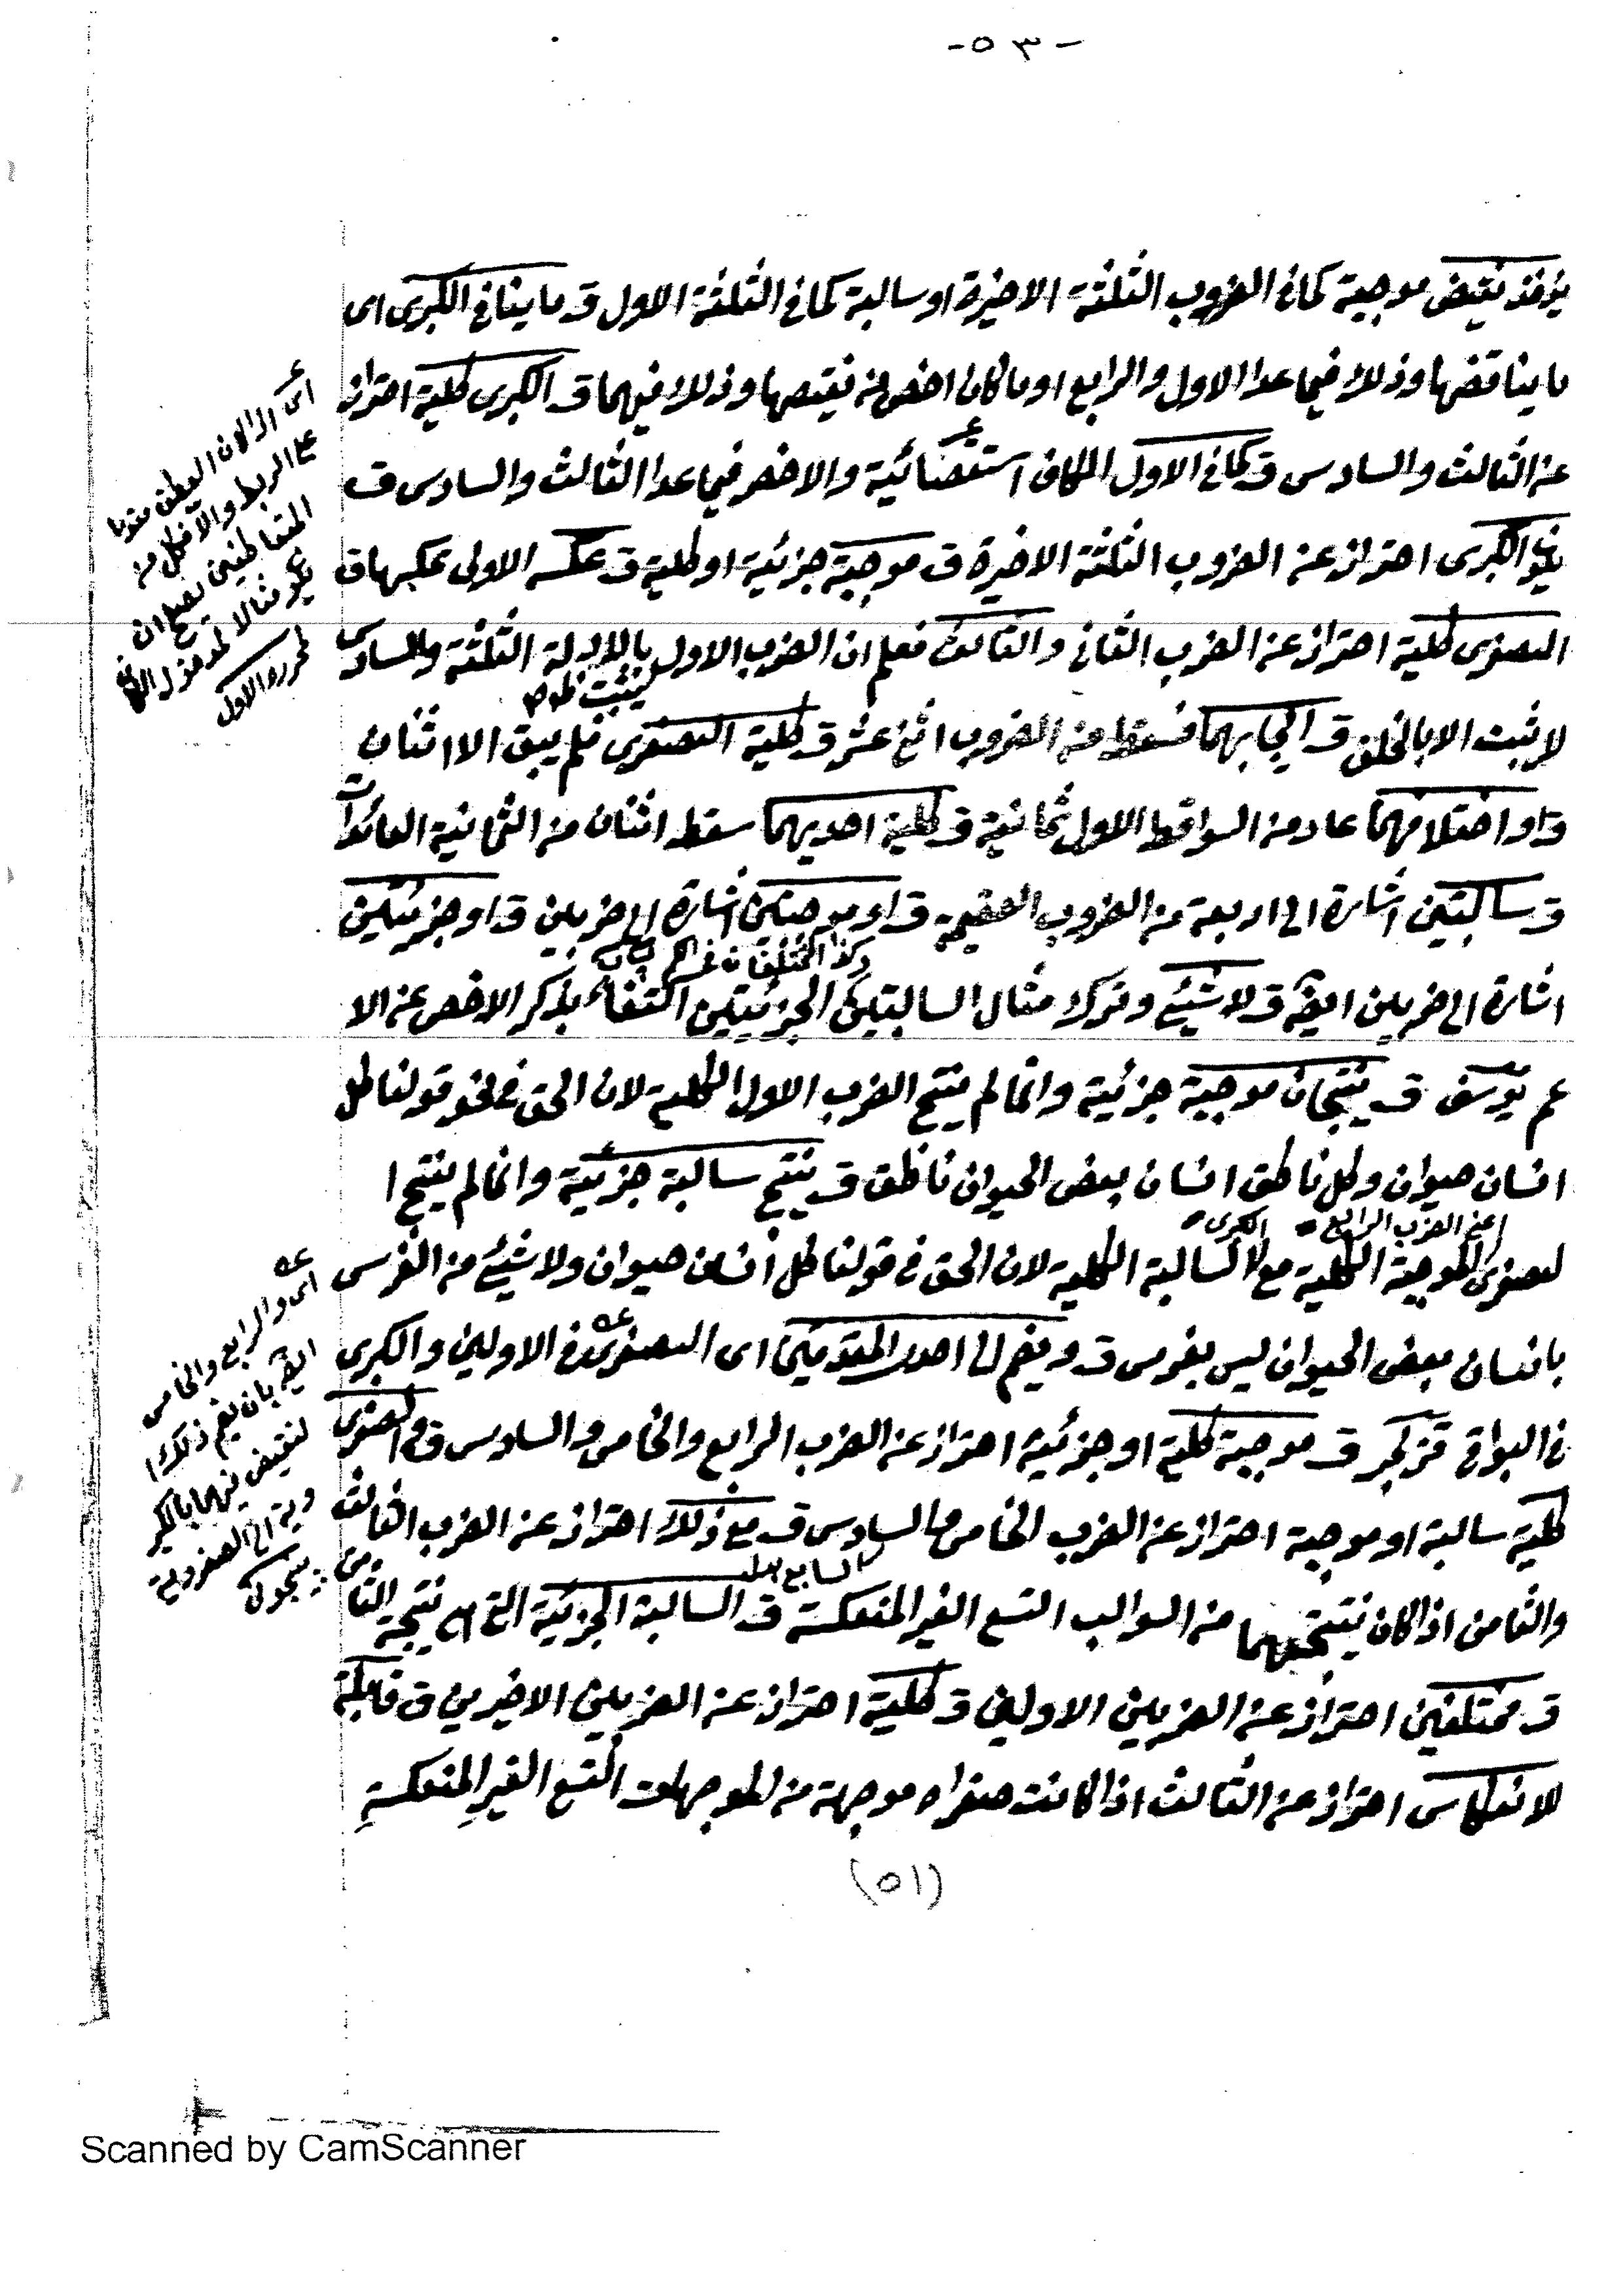 - ٥٣ -
يؤخذ نقيض موجبة كما فى الضروب الثلثة الاخيرة او سالبة كما فى الثلثة الاول قـ ما ينافى الكبرى اى
ما يناقضها وذلك فيما عدا الاول والرابع او ما كان اخص من نقيضها وذلك فيهما قـ الكبرى كلية احتراز
عن الثالث والسادس قـ كما فى الاول الكاف استقصائية والاخصر فيما عدا الثالث والسادس قـ
الكبرى احتراز عن الضروب الثلثة الاخيرة قـ موجبة جزئية او كلية قـ عكسه الاولى عكسها قـ
الصغرى كلية احتراز عن الضرب الثانى والثالث فعلم ان الضرب الاول يثبت بالادلة الثلثة والسادس
لا يثبت الا بالخلف قـ ايجابهما فسقط من الضروب اثنى عشر قـ كلية الصغرى فلم يبق الا اثنان
قـ او اختلافهما عاد من السواقط الاول ثمانية قـ كلية احديهما سقط اثنان من الثمانية العائدات
قـ سالبتين اشارة الى اربعة من الضروب العقيمة قـ او موجبتين اشارة الى ضربين قـ او جزئيتين
اشارة الى ضربين ايضا قـ لا شيئ وترك مثال السالبتين الجزئيتين اكتفاء بذكر الاخص عن الا
عم قـ ينتجان موجبة جزئية وانما لم ينتج الضرب الاول الكلية لان الحق فى نحو قولنا كل
انسان حيوان وكل ناطق انسان بعض الحيوان ناطق قـ ينتج سالبة جزئية وانما لم ينتج ا
اعنى الضرب الرابع الكبرى
لصغرى الموجبة الكلية مع السالبة الكلية لان الحق فى قولنا كل انسان حيوان ولا شيئ من الفرس
بانسان بعض الحيوان ليس بفرس قـ ويضم الى احدى المقدمتين اى الصغرى فى الاولين والكبرى
فى البواقى قـ موجبة كلية او جزئية احتراز عن الضرب الرابع والخامس والسادس قـ والصغرى
كلية سالبة او موجبة احتراز عن الضرب الخامس والسادس قـ مع ذلك احتراز عن الضرب الثالث
والسابع
والثامن اذا كان نتيجتهما من السوالب التسع الغير المنعكسة قـ السالبة الجزئية التى هى نتيجة الثامن
قـ مختلفين احتراز عن الضربين الاولين قـ كلية احتراز عن الضربين الاخيرين قـ قابلة
للانعكاس احتراز عن الثالث اذا كانت صغراه موجهة من الموجهات التسع الغير المنعكسة
(٥١)
اى والرابع والخامس
Scanned by CamScanner